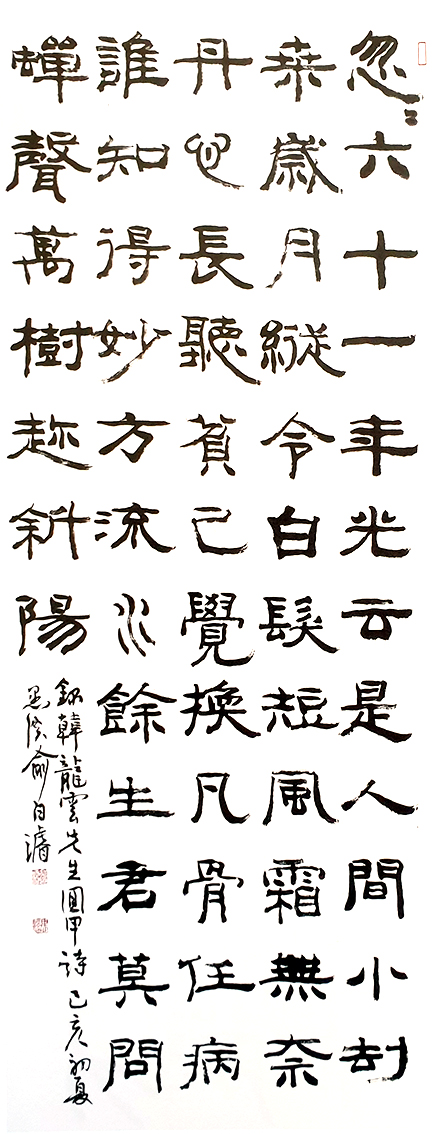 忽〻六十一年光云是人間小劫
桒歲月縱令白髮短風霜無奈
丹心長聽貧已覺換凡骨任病
誰知得妙方流水餘生君莫問
蟬聲萬樹趂斜陽
錄韓龍雲先生圓甲詩己亥初夏
俞白濬